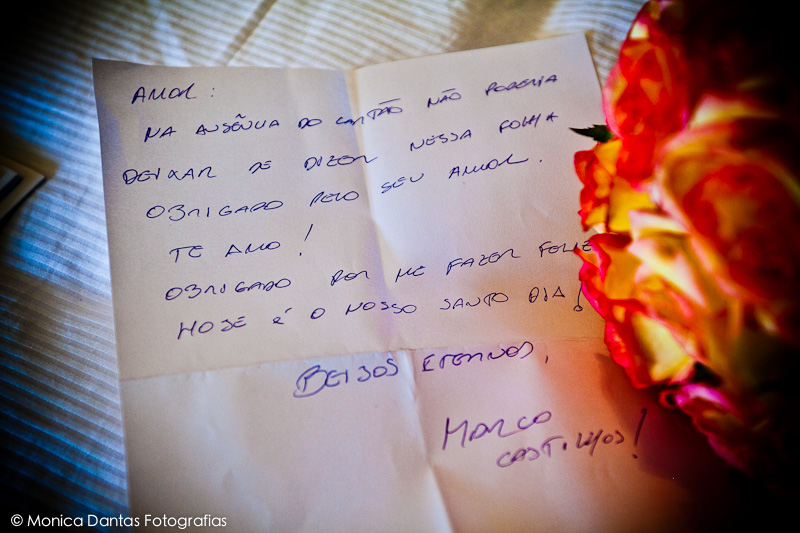 AMOR:
NA AUSÊNCIA DO CARTÃO NÃO PODERIA
DEIXAR DE DIZER NESSA FOLHA
OBRIGADO PELO SEU AMOR.
TE AMO!
OBRIGADO POR ME FAZER FELIZ
HOJE É O NOSSO SANTO DIA!
BEIJOS ETERNOS,
MARCO
CASTILHOS!
© Monica Dantas Fotografias